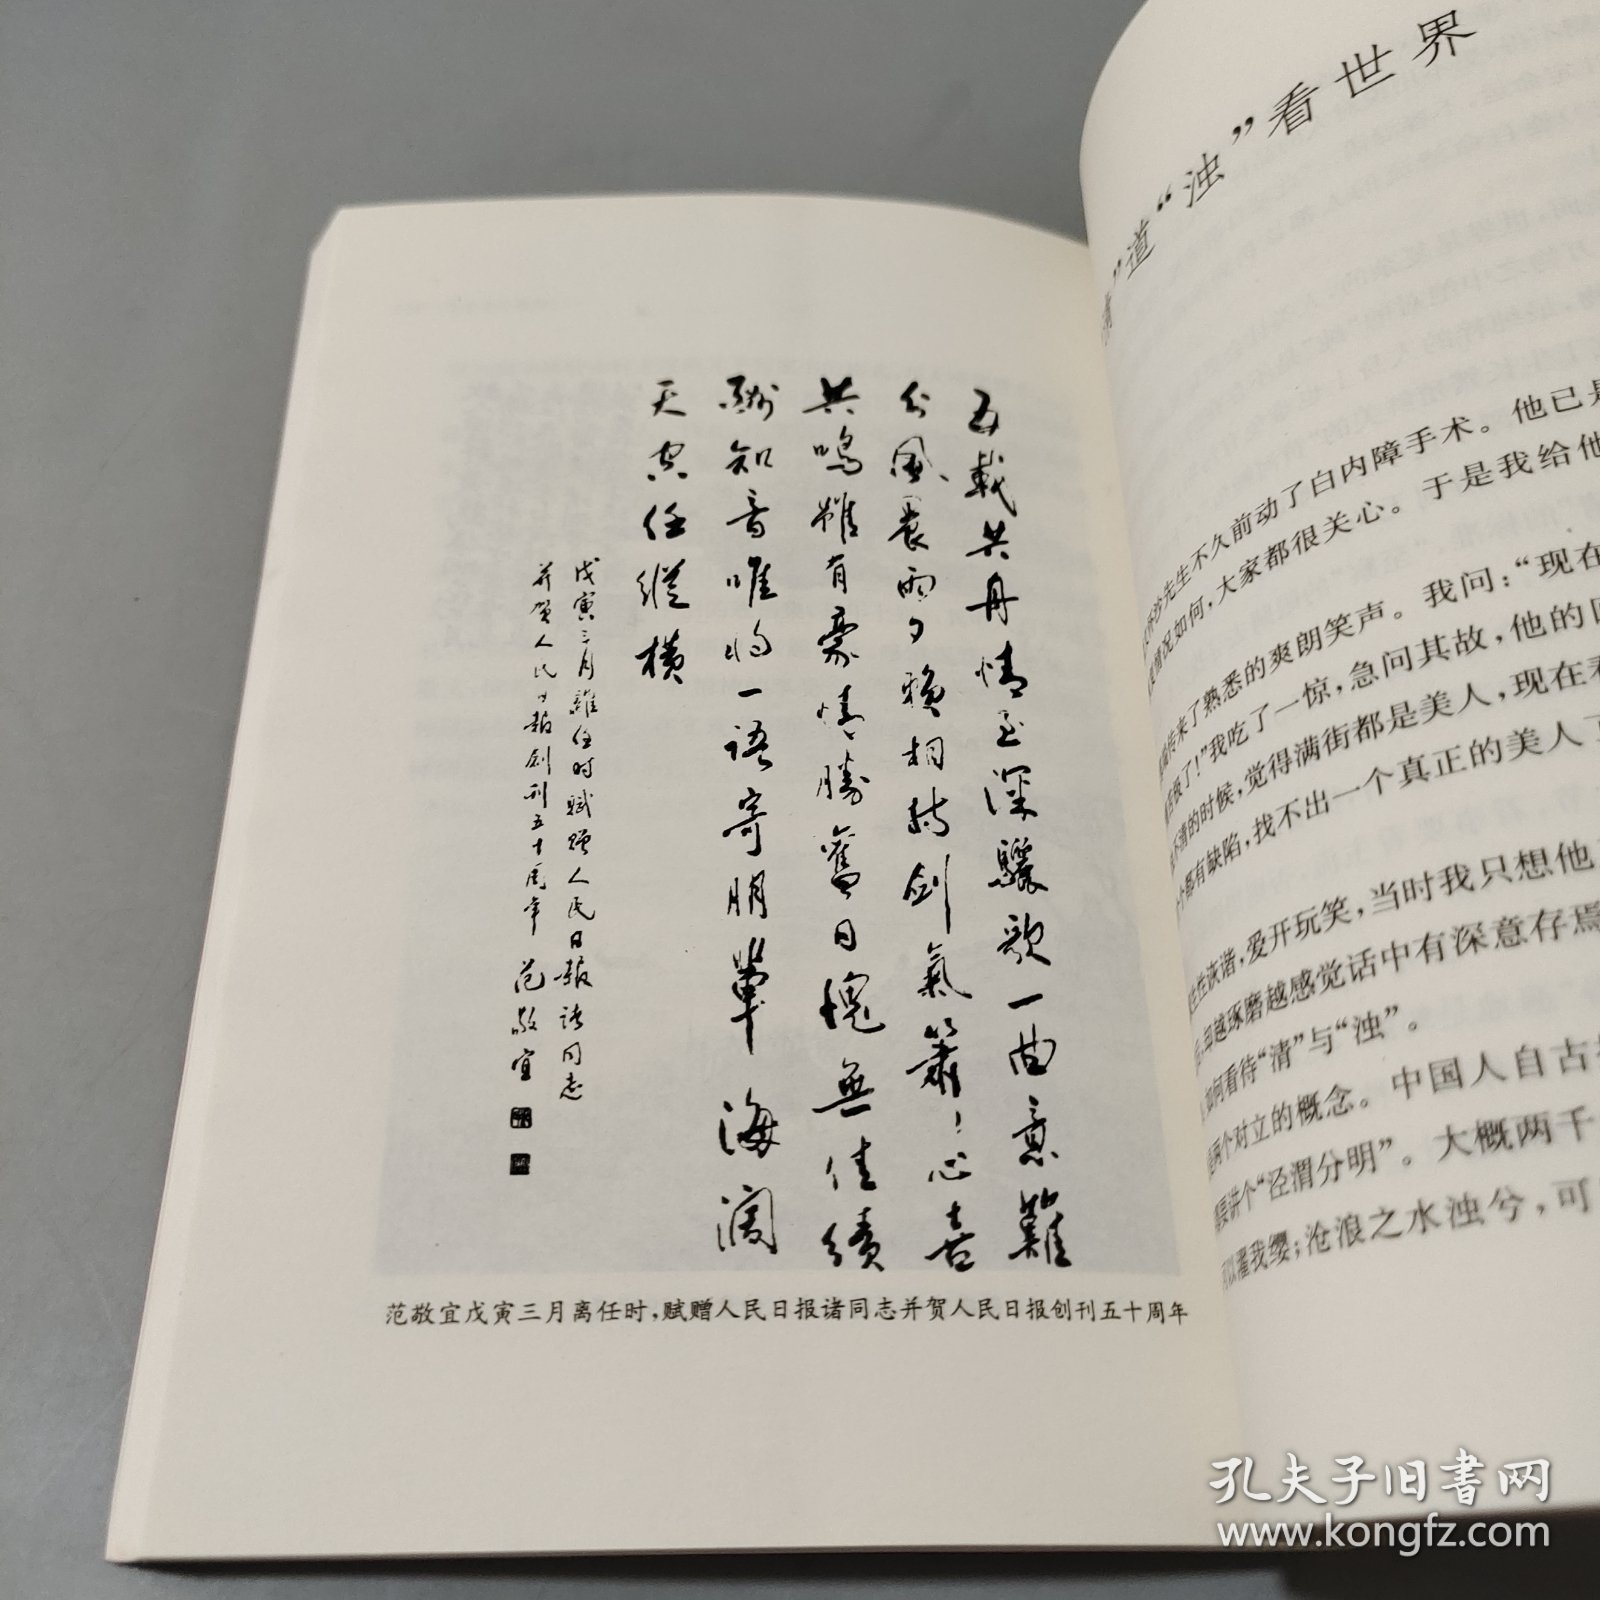 五載共舟情至深驪歌一曲意難
分風晨雨夕賴相持劍氣簫心喜
共鳴雖有豪情勝舊日愧無佳績
酬知音唯將一語寄朋輩海闊
天空任縱橫
戊寅三月離任時賦贈人民日報諸同志
并賀人民日報創刊五十周年 范敬宜
范敬宜戊寅三月离任时，赋赠人民日报诸同志并贺人民日报创刊五十周年
”道“浊”看世界
先生不久前动了白内障手术。他已是
情况如何，大家都很关心。于是我给他
传来了熟悉的爽朗笑声。我问：“现在
了！”我吃了一惊，急问其故，他的回
不清的时候，觉得满街都是美人，现在看
个都有缺陷，找不出一个真正的美人了
诙谐，爱开玩笑，当时我只想他
却越琢磨越感觉话中有深意存焉
如何看待“清”与“浊”。
两个对立的概念。中国人自古
要讲个“泾渭分明”。大概两千
以濯我缨；沧浪之水浊兮，可
孔夫子旧书网
www.kongfz.com